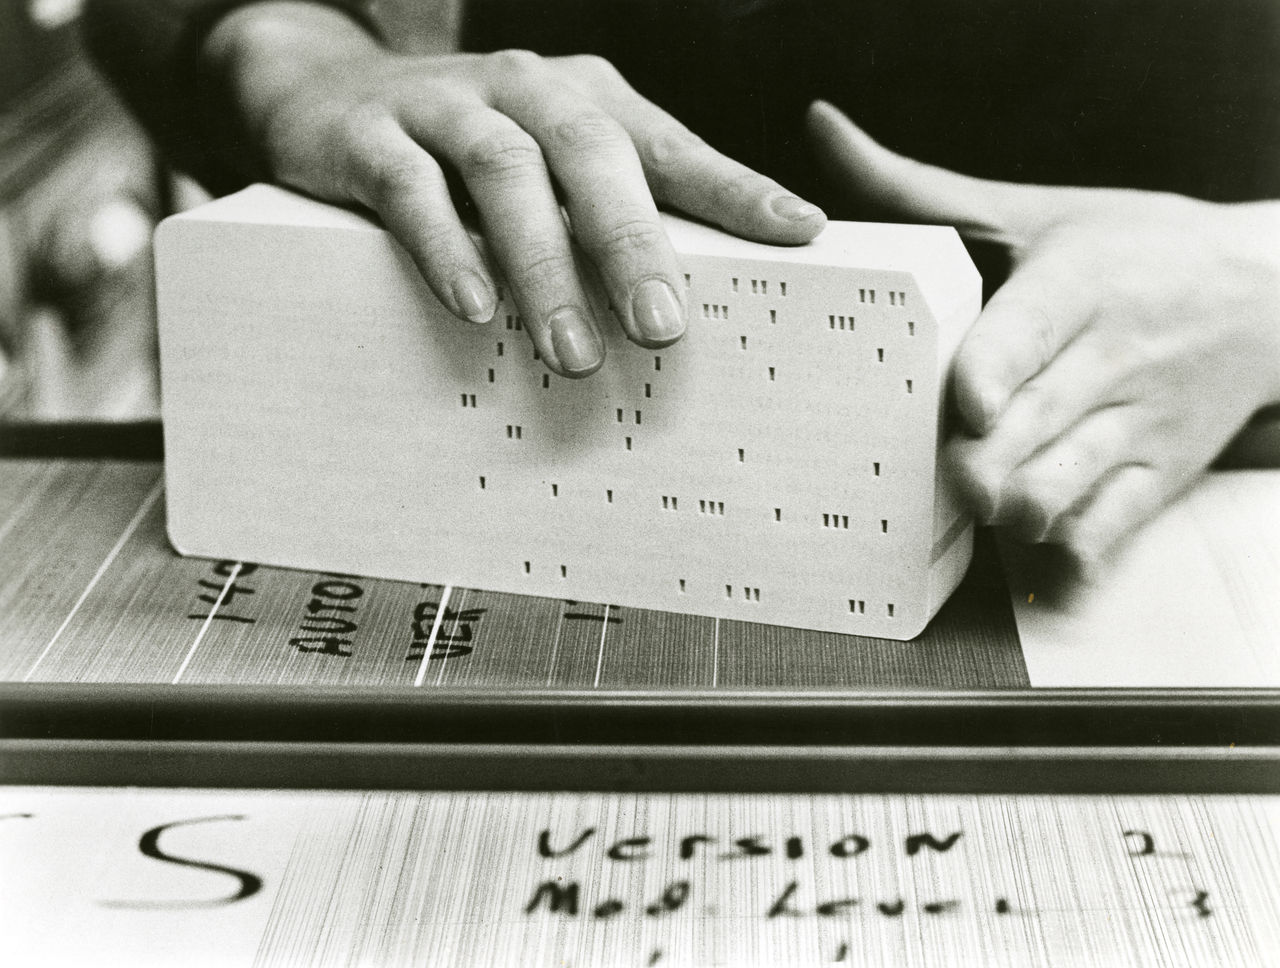 140
AUTO
VER
S
Version 2
Mod. Level 3